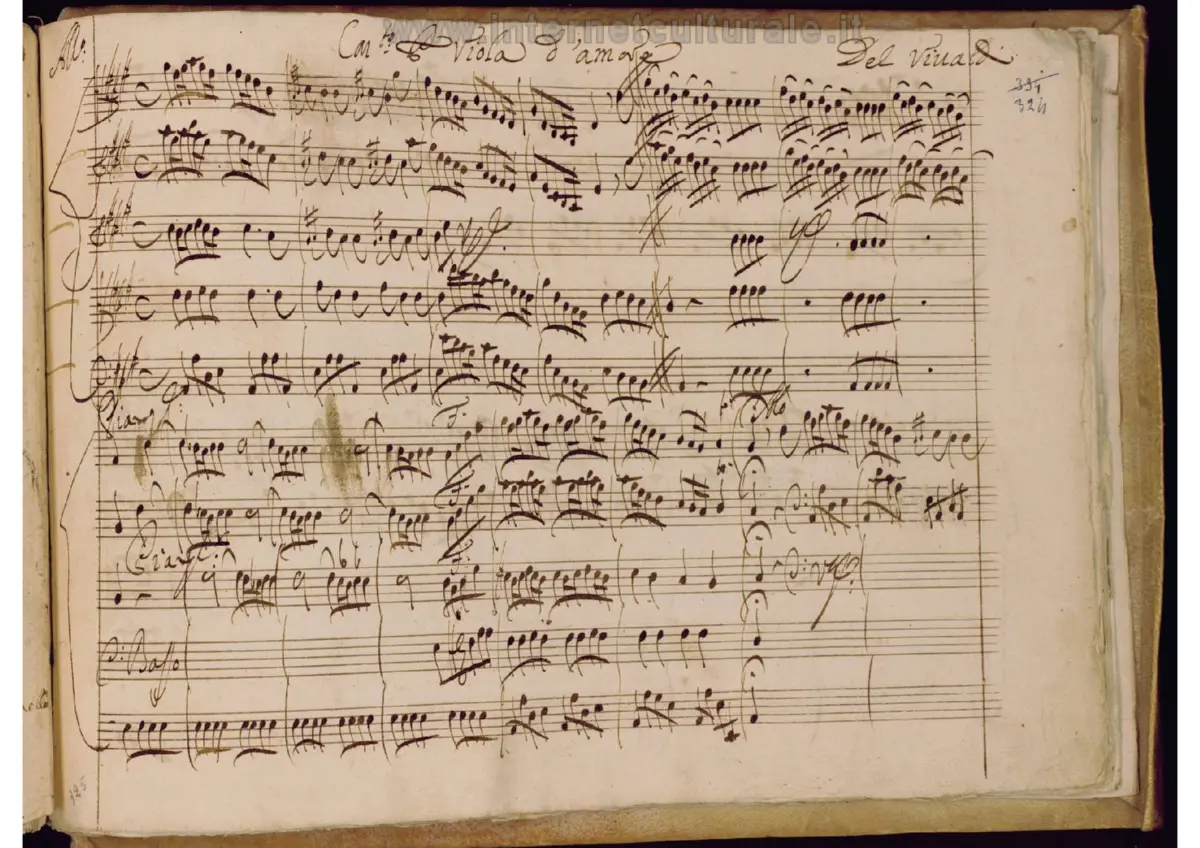 www.internetculturale.it
All.º Con.to p Viola d'amore Del Vivaldi
331
324
Pian
F.
Pian
Basso
125